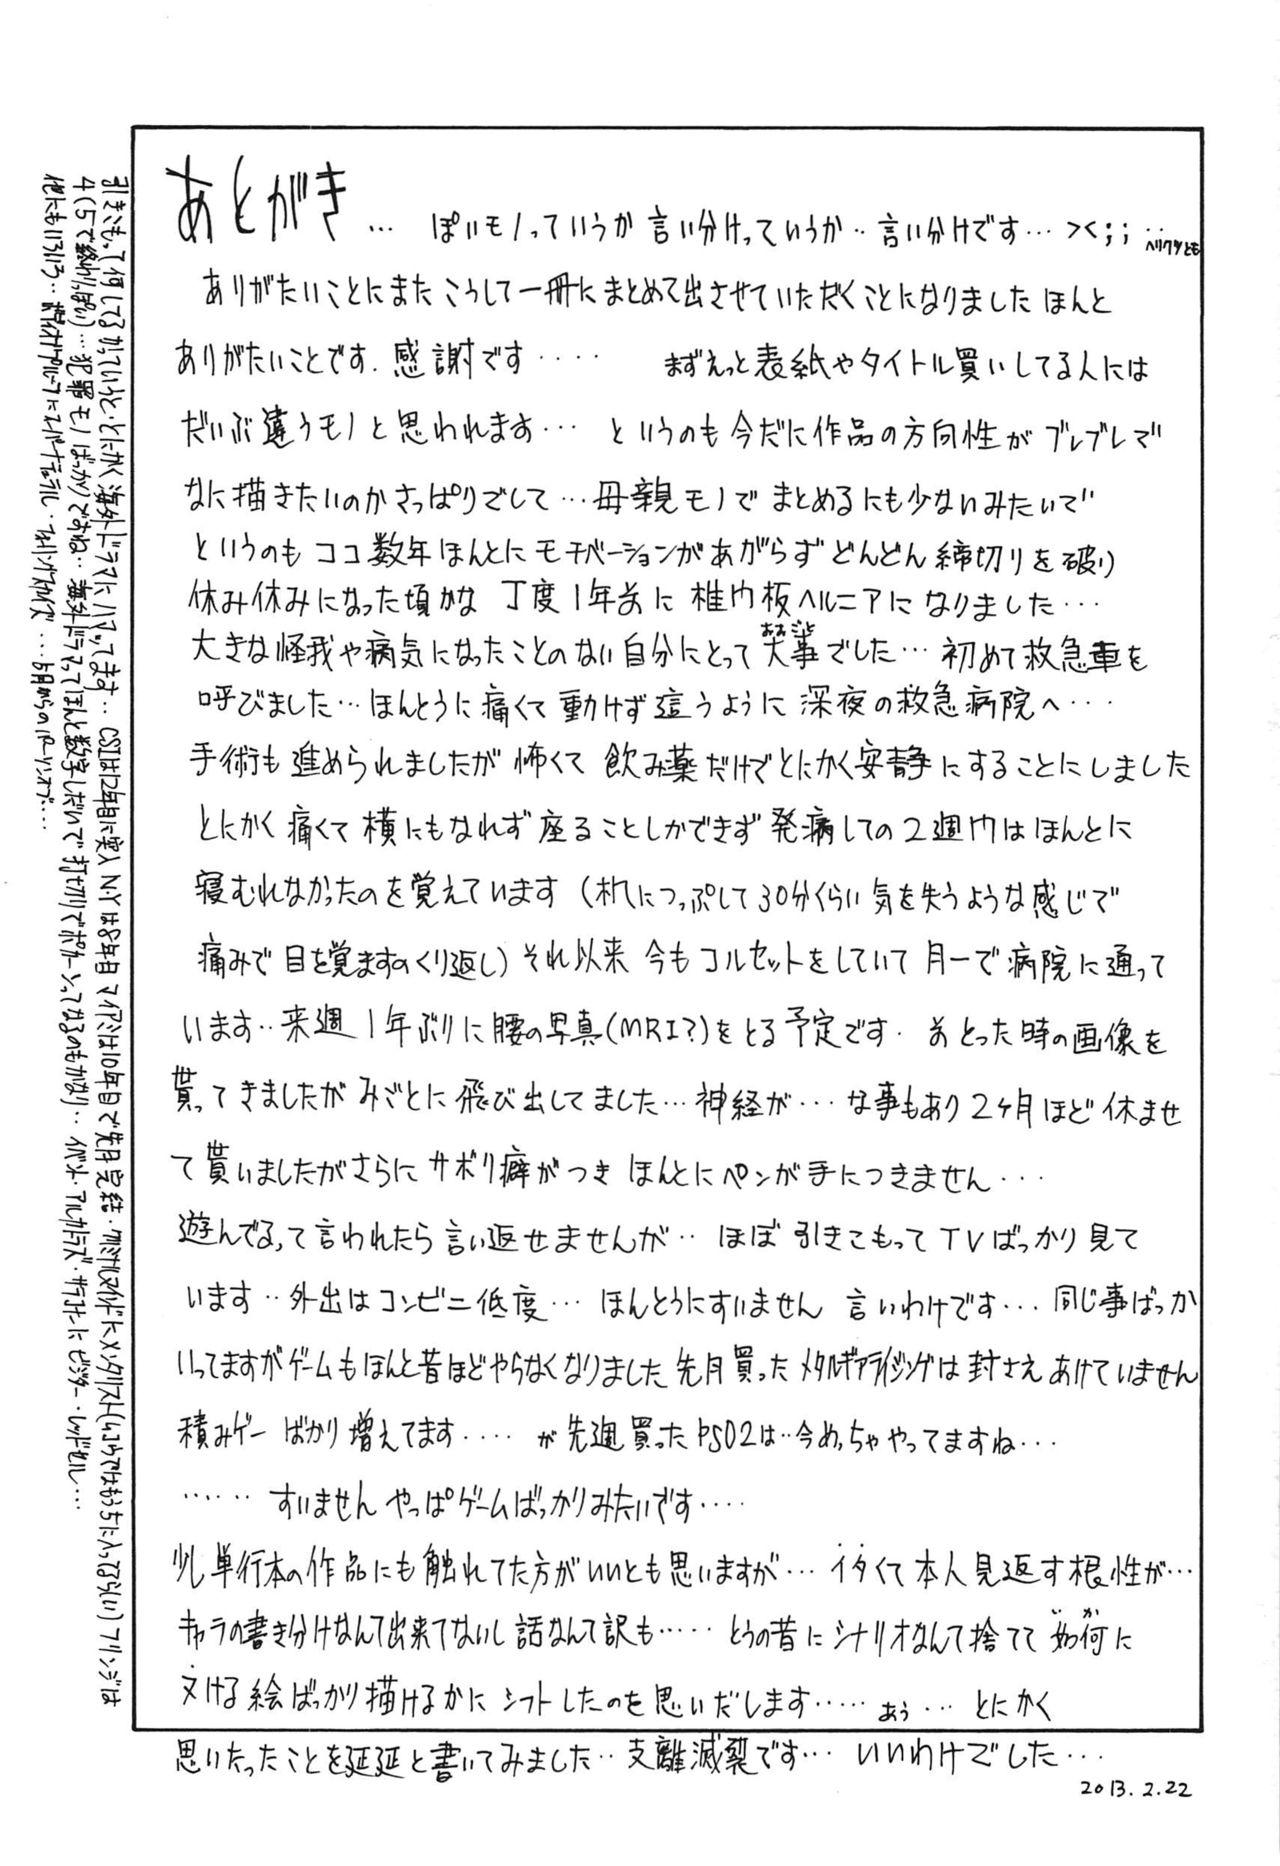 あとがき… ぽいモノっていうか 言い分けっていうか‥ 言い分けです… ><;; ‥
ヘリクツとも
ありがたいことにまた こうして一冊に まとめて出させていただくことになりました ほんと
ありがたいことです. 感謝です ‥‥ まずえっと表紙やタイトル買いしてる人には
だいぶ違うモノと思われます… というのも今だに作品の方向性が ブレブレで
なに描きたいのかさっぱりでして …母親モノで まとめるにも少ないみたいで
というのも ココ数年ほんとに モチベーションがあがらず どんどん 締切りを破り
休み休みになった頃かな 丁度1年前に 椎間板ヘルニアに なりました…
大きな怪我や病気になったことのない自分にとって 大事でした… 初めて救急車を
おおごと
呼びました… ほんとうに痛くて動けず這うように 深夜の救急病院へ…
手術も進められましたが 怖くて 飲み薬だけでとにかく安静にすることにしました
とにかく痛くて横にもなれず 座ることしかできず 発病しての2週間はほんとに
寝むれなかったのを覚えています (机につっぷして30分くらい気を失うような感じで
痛みで 目を覚ますのくり返し) それ以来 今もコルセットをしていて 月一で病院に通って
います‥来週1年ぶりに腰の写真(MRI?)をとる予定です. 前とった時の画像を
貰ってきましたが みごとに飛び出してました…神経が…な事もあり2ヶ月ほど休ませ
て貰いましたがさらに サボり癖がつき ほんとにペンが手につきません…
遊んでるって言われたら言い返せませんが‥ ほぼ引きこもって TVばっかり見て
います‥外出はコンビニ低度… ほんとうにすいません 言いわけです… 同じ事ばっか
いってますがゲームもほんと昔ほどやらなくなりました 先月買った メタルギアライジングは封さえあけていません
積みゲー ばかり増えてます‥‥ が先週買ったPSO2は‥今めっちゃやってますね…
…… すいません やっぱゲームばっかりみたいです‥‥
少し単行本の作品にも触れてた方がいいとも思いますが… イタくて本人見返す根性が…
キャラの書き分けなんて出来てないし 話なんて訳も‥‥‥ とうの昔に シナリオなんて捨てて 如何に
いか
ヌける絵ばっかり描けるかに シフトしたのを思いだします‥‥‥ ぁぅ… とにかく
思いたったことを延延と書いてみました‥支離滅裂です… いいわけでした…
2013.2.22
引きこもって何してるかっていうと‥とにかく海外ドラマにハマってます‥ CSIは12年目に突入 N.Yは8年目 マイアミは10年目で先月完結・クリミナルマインドにメンタリスト(ムコウではもう5に入ってるらしい) フリンジは
4(5で終わりっぽい)…犯罪モノばっかりですね‥海外ドラマってほんと数字しだいで 打ち切りでポカーンってなるのもかなり‥ イベント・アルカトラズ・テラノバに ビジター・レッドセル…
他にもいろいろ‥ スーパーナチュラル・フォーリングスカイズ…5月からのパーソンオブ…